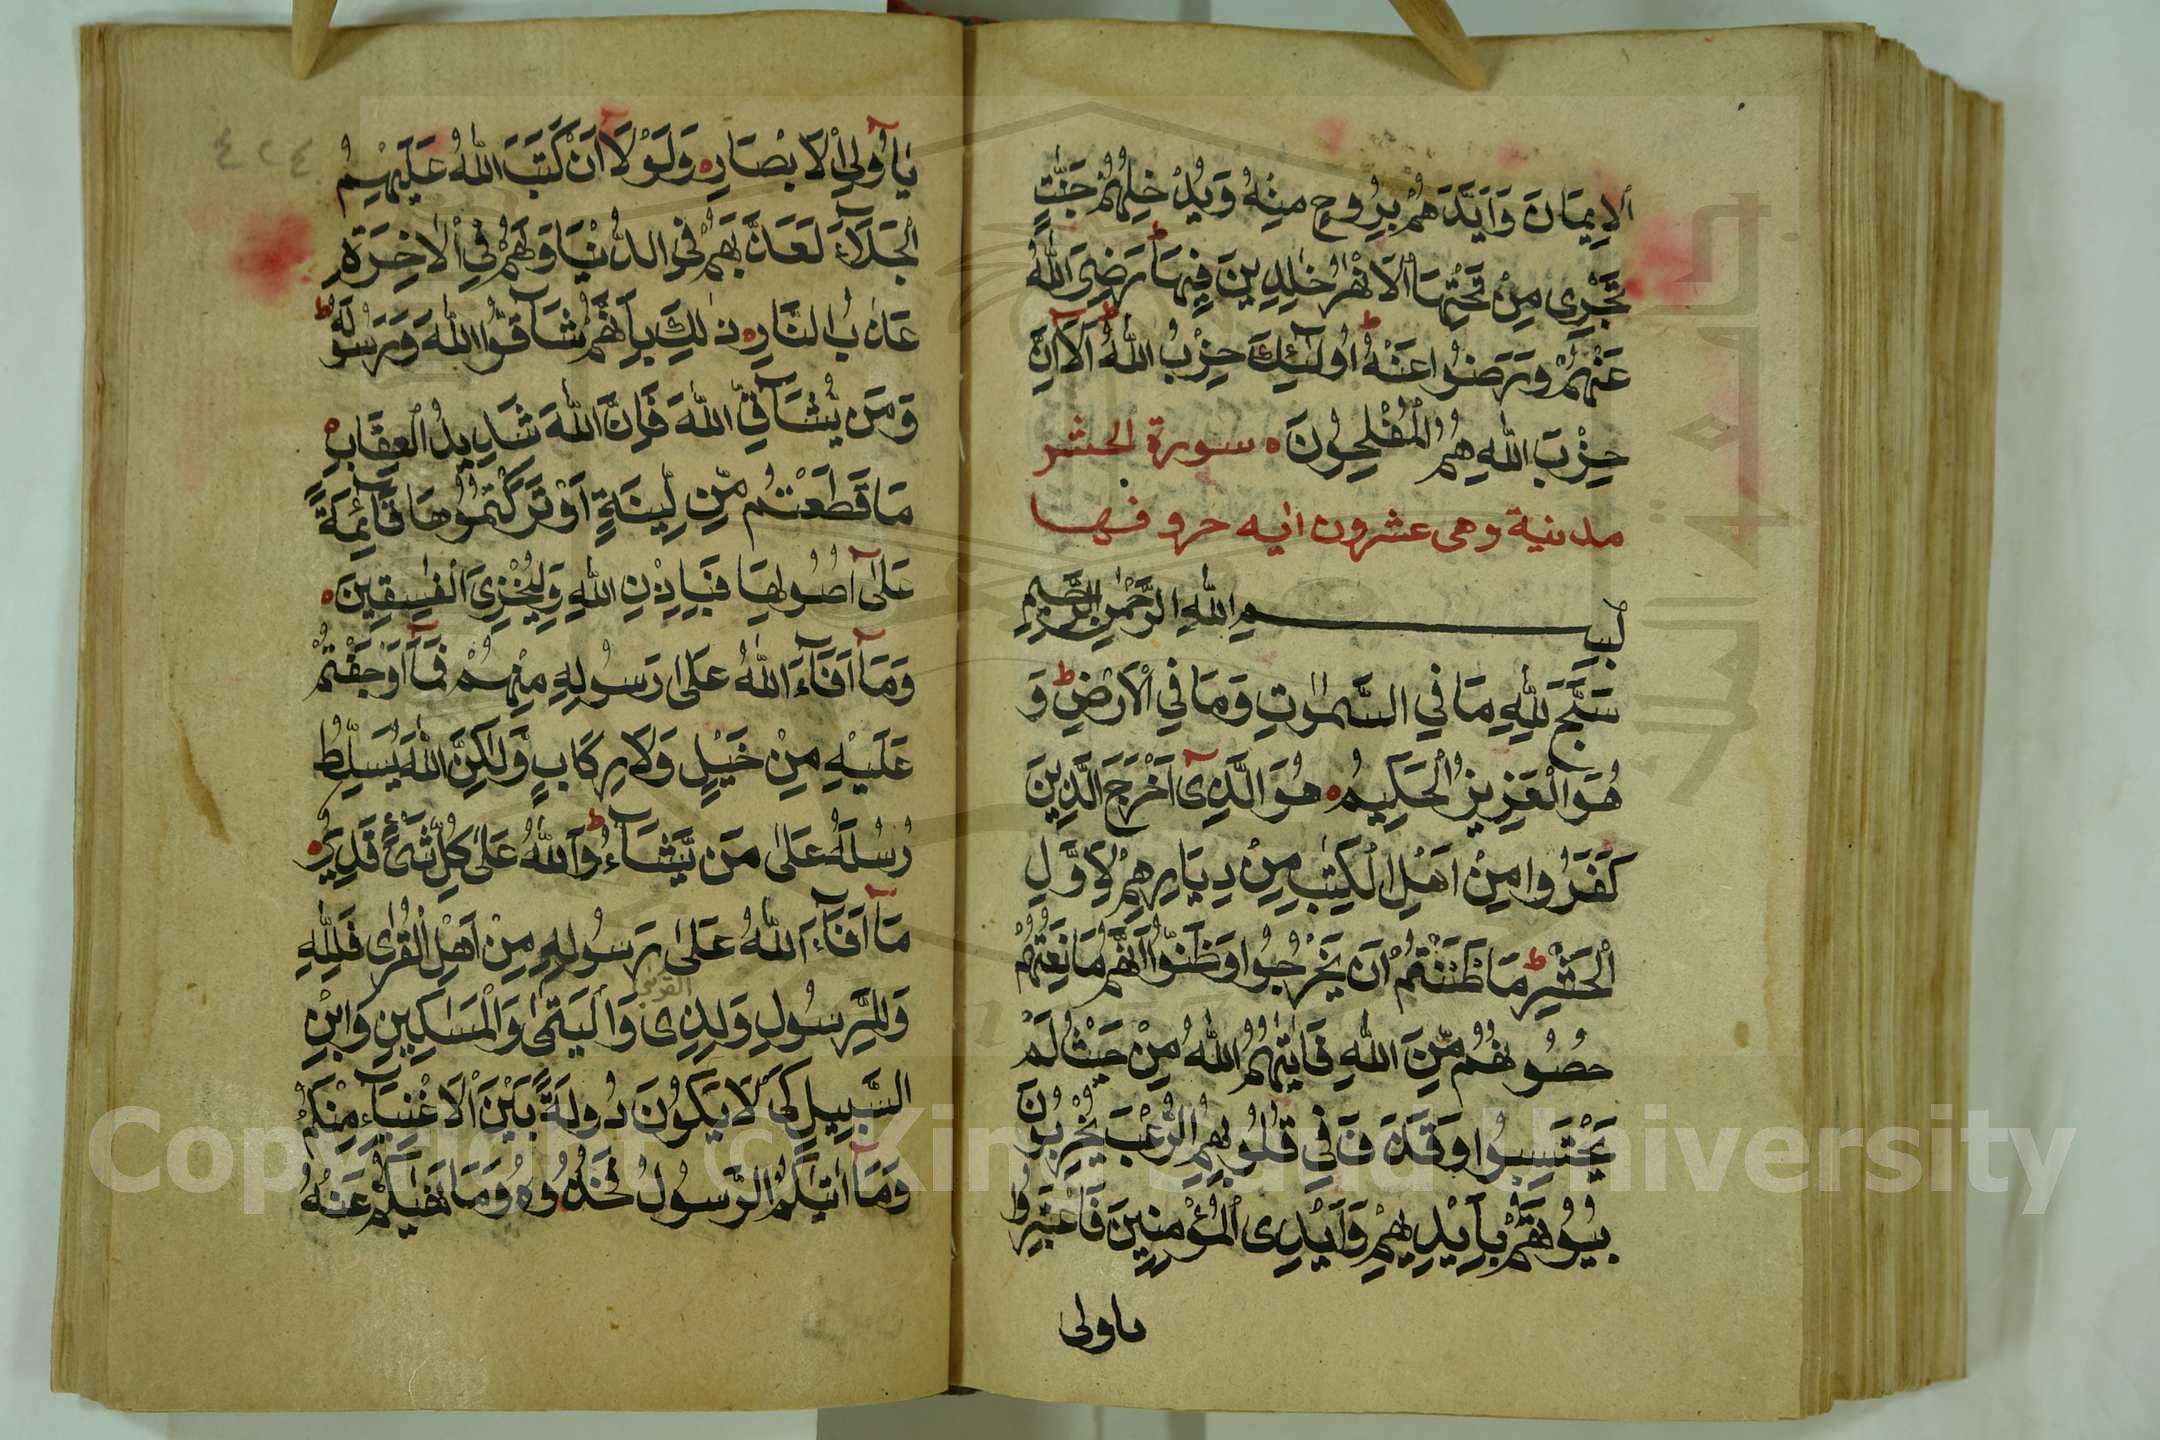 الاِيمَانَ وَاَيَّدَهُمْ بِرُوحٍ مِنْهُ وَيُدْخِلُهُمْ جَنّٰتٍ
تَجْرِى مِنْ تَحْتِهَا الْاَنْهٰرُ خٰلِدِينَ فِيهَا ط رَضِىَ اللّٰهُ
عَنْهُمْ وَرَضُوا عَنْهُ ط اُولٰٓئِكَ حِزْبُ اللّٰهِ ط اَلَآ اِنَّ
حِزْبَ اللّٰهِ هُمُ الْمُفْلِحُونَ ه سورة الحشر
مدنية وهى عشرون ايه حروفها
بِسْمِ اللّٰهِ الرَّحْمٰنِ الرَّحِيمِ
سَبَّحَ لِلّٰهِ مَا فِي السَّمٰوٰتِ وَمَا فِي الْاَرْضِ ط وَ
هُوَ الْعَزِيزُ الْحَكِيمُ ه هُوَ الَّذِىٓ اَخْرَجَ الَّذِينَ
كَفَرُوا مِنْ اَهْلِ الْكِتٰبِ مِنْ دِيَارِهِمْ لِاَوَّلِ
الْحَشْرِ ط مَا ظَنَنْتُمْ اَنْ يَخْرُجُوا وَظَنُّوا اَنَّهُمْ مَانِعَتُهُمْ
حُصُونُهُمْ مِّنَ اللّٰهِ فَاَتٰهُمُ اللّٰهُ مِنْ حَيْثُ لَمْ
يَحْتَسِبُوا وَقَذَفَ فِي قُلُوبِهِمُ الرُّعْبَ يُخْرِبُونَ
بُيُوتَهُمْ بِاَيْدِيهِمْ وَاَيْدِى الْمُؤْمِنِينَ فَاعْتَبِرُوا
ياولى
٤٢٤
يٰٓاُولِي الْاَبْصَارِ ه وَلَوْلَآ اَنْ كَتَبَ اللّٰهُ عَلَيْهِمُ
الْجَلَآءَ لَعَذَّبَهُمْ فِي الدُّنْيَا وَلَهُمْ فِي الْاٰخِرَةِ
عَذَابُ النَّارِ ه ذٰلِكَ بِاَنَّهُمْ شَآقُّوا اللّٰهَ وَرَسُولَهُ ط
وَمَن يُّشَآقِّ اللّٰهَ فَاِنَّ اللّٰهَ شَدِيدُ الْعِقَابِ ه
مَا قَطَعْتُمْ مِّن لِّينَةٍ اَوْ تَرَكْتُمُوهَا قَآئِمَةً
عَلٰٓى اُصُولِهَا فَبِاِذْنِ اللّٰهِ وَلِيُخْزِىَ الْفٰسِقِينَ ه
وَمَآ اَفَآءَ اللّٰهُ عَلٰى رَسُولِهِ مِنْهُمْ فَمَآ اَوْجَفْتُمْ
عَلَيْهِ مِنْ خَيْلٍ وَلَا رِكَابٍ وَّلٰكِنَّ اللّٰهَ يُسَلِّطُ
رُسُلَهُ عَلٰى مَن يَّشَآءُ ط وَاللّٰهُ عَلٰى كُلِّ شَىْءٍ قَدِيرٌ ه
مَآ اَفَآءَ اللّٰهُ عَلٰى رَسُولِهِ مِنْ اَهْلِ الْقُرٰى فَلِلّٰهِ
وَلِلرَّسُولِ وَلِذِى القربى وَالْيَتٰمٰى وَالْمَسٰكِينِ وَابْنِ
السَّبِيلِ كَىْ لَا يَكُونَ دُولَةً بَيْنَ الْاَغْنِيَآءِ مِنْكُمْ
وَمَآ اٰتٰىكُمُ الرَّسُولُ فَخُذُوهُ وَمَا نَهٰىكُمْ عَنْهُ
Copyright © King Saud University